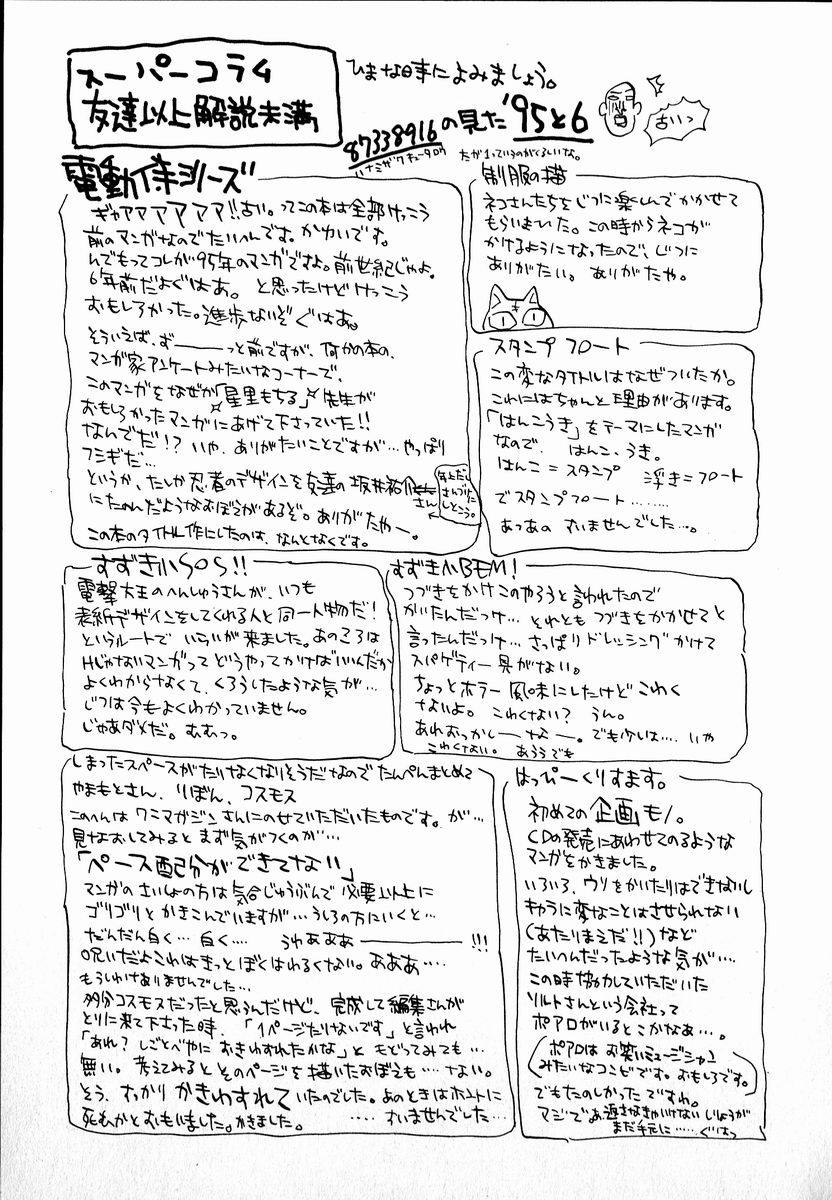 スーパーコラム
友達以上解説未満
ひまな時によみましょう。
87338916の見た'95と6
ハナミザワキュータロウ
古いっ
電動侍シリーズ
ギャアアアアアア!!古い。ってこの本は全部けっこう
前のマンガなのでたいへんです。かわいです。
んでもってコレが95年のマンガですよ。前世紀じゃよ。
6年前だよぐはあ。 と思ったけどけっこう
おもしろかった。進歩ないぞぐはぁ。
そういえば、ず───っと前ですが、何かの本の、
マンガ家アンケートみたいなコーナーで、
このマンガをなぜか「星里もちる」先生が
おもしろかったマンガにあげて下さっていた!!
なんでだ!? いや、ありがたいことですが…やっぱり
フシギだ…
というか、たしか忍者のデザインを友達の坂井祐介さん
にたのんだようなおぼえがあるぞ。ありがたやー。
この本のタイトル作にしたのは、なんとなくです。
年上だし
さんづけに
しとこう。
制服の猫
ネコさんたちをじつに楽しんでかかせて
もらいました。この時からネコが
かけるようになったので、じつに
ありがたい。ありがたや。
スタンプフロート
この変なタイトルはなぜついたか。
これにはちゃんと理由があります。
「はんこうき」をテーマにしたマンガ
なので、はんこ、うき。
はんこ=スタンプ 浮き=フロート
でスタンプフロート………
あっあの すいませんでした…。
すずき小SOS!!
電撃大王のへんしゅうさんが、いつも
表紙デザインをしてくれる人と同一人物だ!
というルートでいらいが来ました。あのころは
Hじゃないマンガってどうやってかけばいいんだか
よくわからなくて、くろうしたような気が…
じつは今もよくわかっていません。
じゃあダメだ。むむっ。
すずき小BEM!
つづきをかけこのやろうと言われたので
かいたんだっけ… それともつづきをかかせてと
言ったんだっけ… さっぱりドレッシングかけて
スパゲティー 具がない。
ちょっとホラー風味にしたけどこわく
ないよ。 こわくない? うん。
あれおっかしーなー。でも少しは…いや
こわくない。 あろうでも
しまったスペースがたりなくなりそうだなのでたんぺんまとめて
やまもとさん、りぼん、コスモス
このへんはワニマガジンさんにのせていただいたものです。が…
見なおしてみるとまず気がつくのが…
「ペース配分ができてない」
マンガのさいしょの方は気合じゅうぶんで必要以上に
ゴリゴリとかきこんでいますが…うしろの方にいくと…
だんだん白く…白く… うわあああ────!!!
呪いだよこれはきっとぼくはわるくない。あああ…
もうしわけありませんでした…
多分コスモスだったと思うんだけど、完成して編集さんが
とりに来て下さった時、「1ページたりないです」と言われ
「あれ?しごとべやにおきわすれたかな」ともどってみても…
無い。考えてみるとそのページを描いたおぼえも…ない。
そう、すっかりかきわすれていたのでした。あのときはホントに
死ぬかとおもいました。かきました。 ……すいませんでした…
はっぴーくりすます。
初めての企画モノ。
CDの発売にあわせてのるような
マンガをかきました。
いろいろ、ウリをかいたりはできないし
キャラに変なことはさせられない
(あたりまえだ!!)など
たいへんだったような気が…
この時協力していただいた
ソルトさんという会社って
ポアロがいるとこかなぁ…。
(ポアロはお笑いミュージシャン
みたいなコンビです。おもしろです。)
でもたのしかったですね。
マジであ返さなきゃいけないしりょうが
まだ手元に……ぐはっ